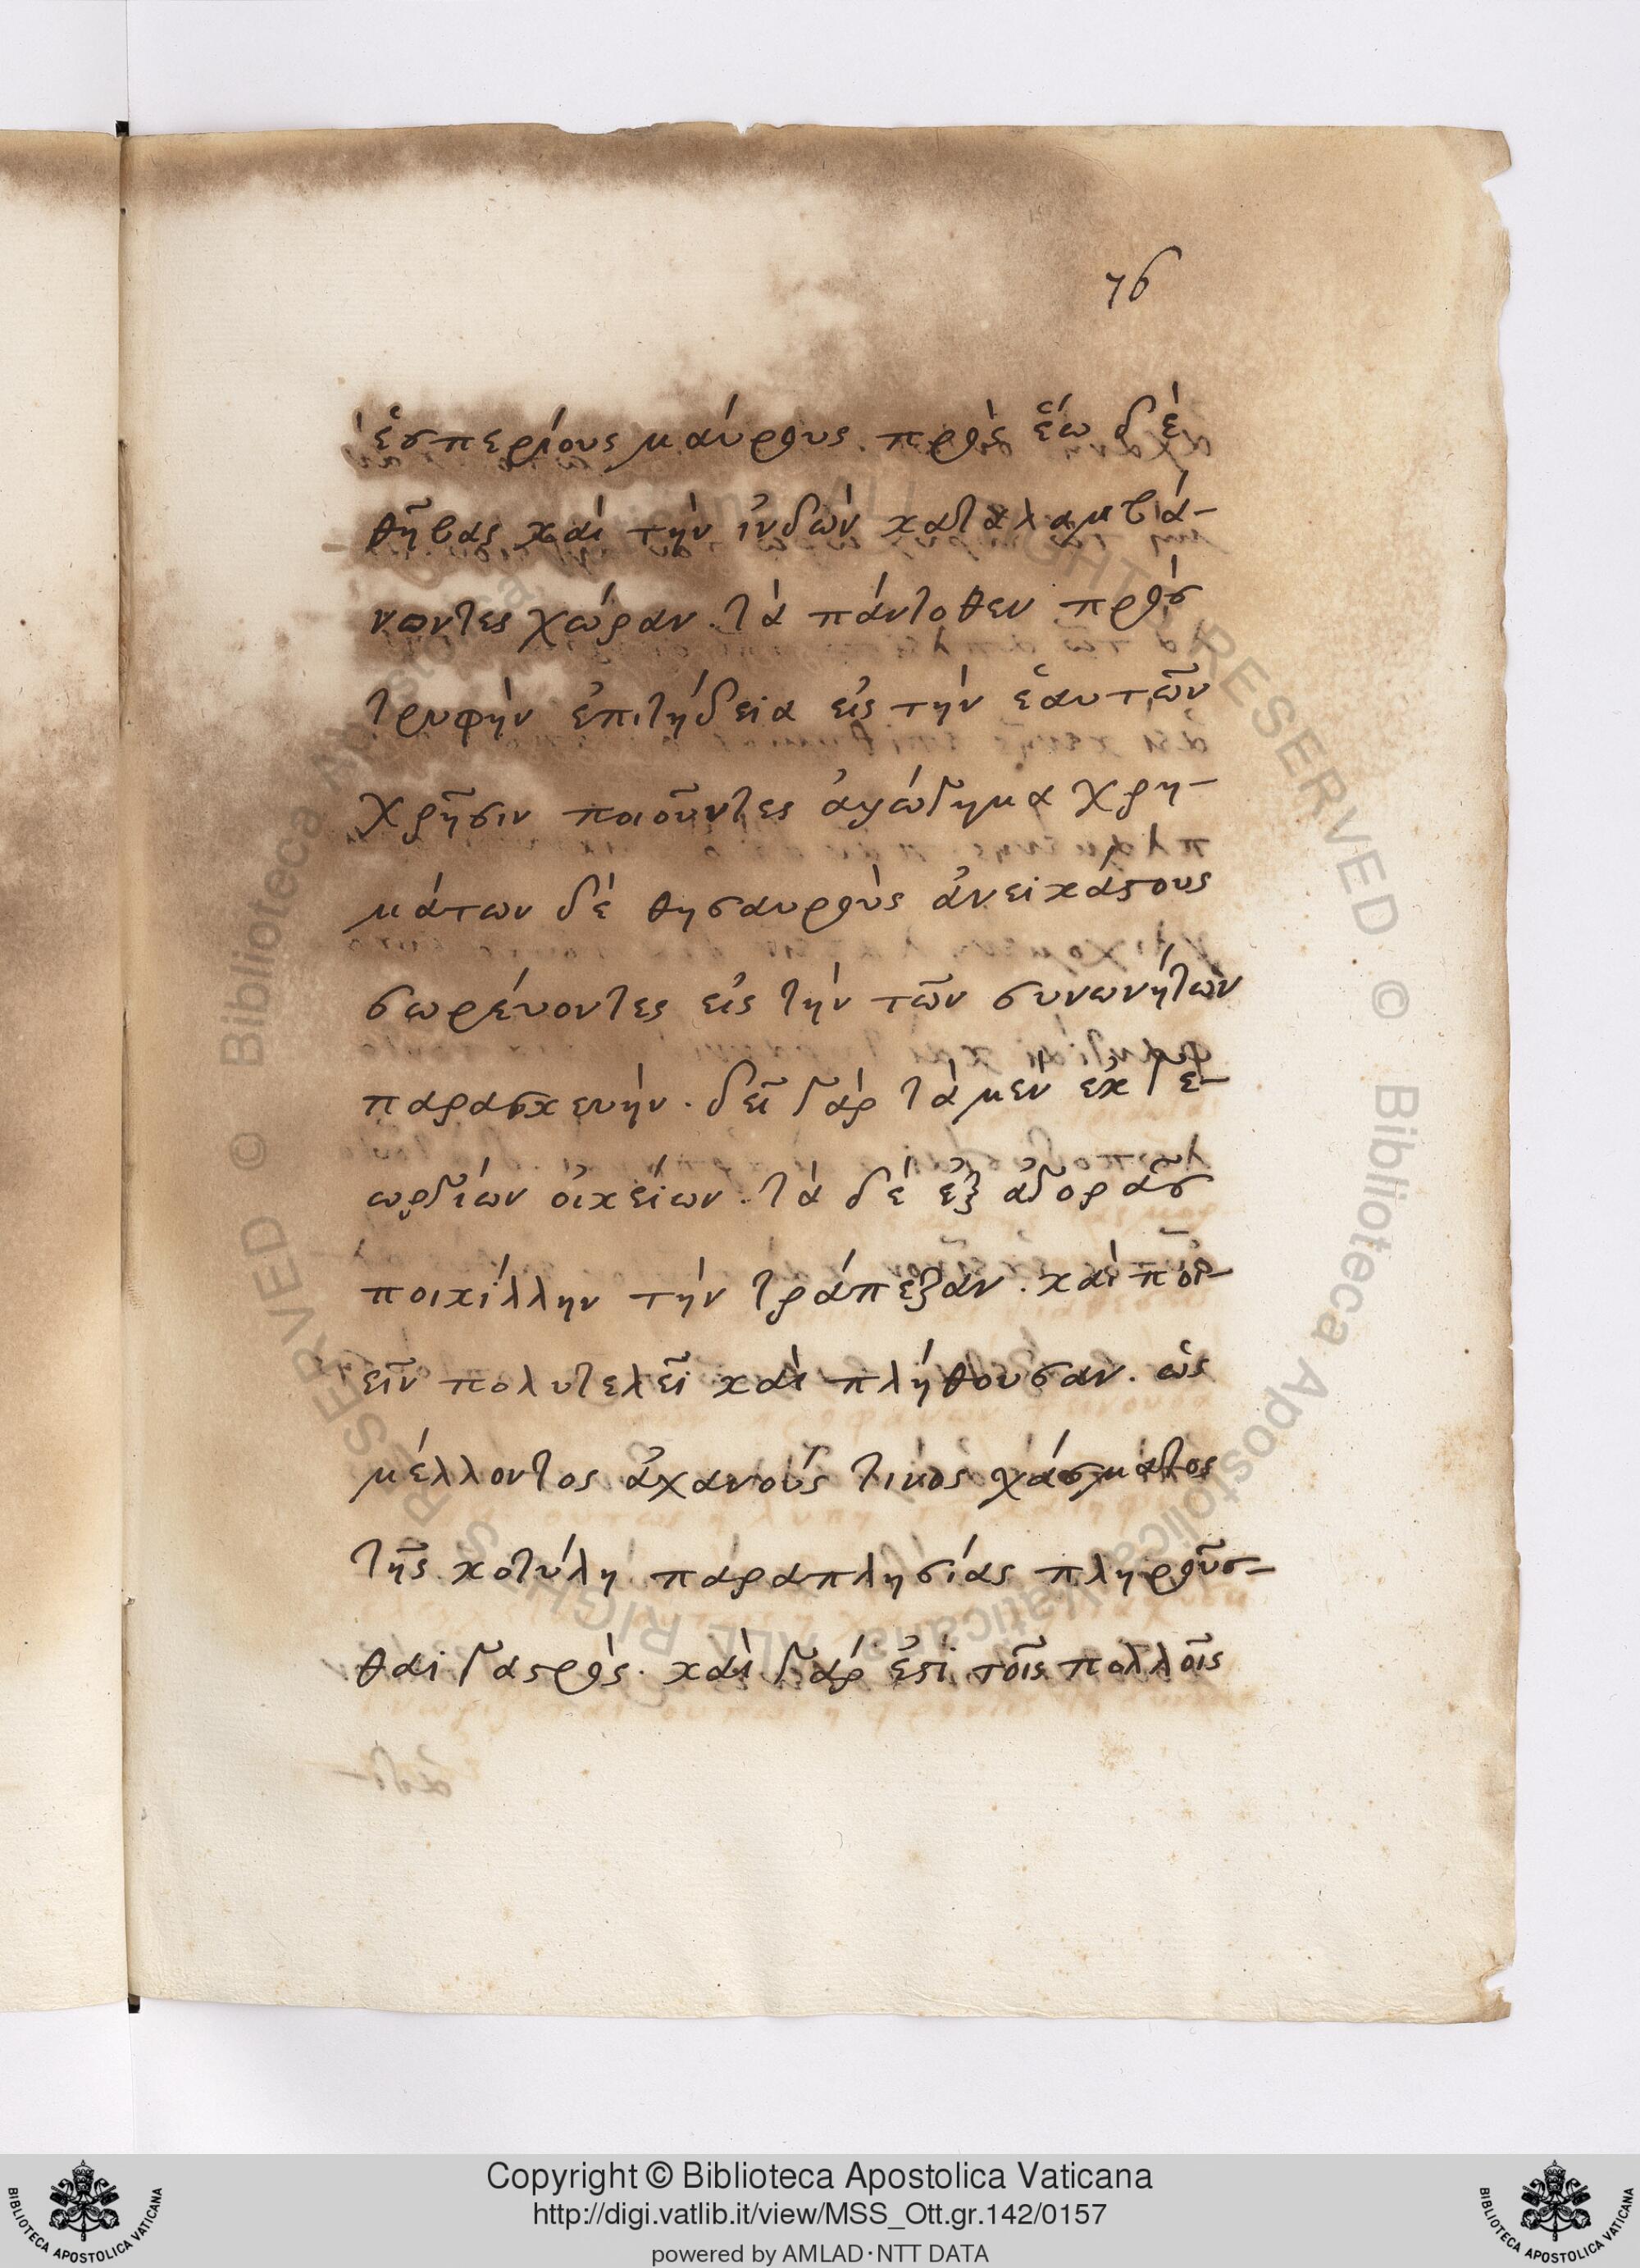 76
ἑσπερίους μαύρους. πρὸς ἕω δὲ
θῆβας καὶ τὴν ἰνδῶν καταλαμβά-
νοντες χώραν. τὰ πάντοθεν πρὸσ
τρυφὴν ἐπιτήδεια εἰς τὴν ἑαυτῶν
χρῆσιν ποιοῦντες ἀγώγημα χρη-
μάτων δὲ θησαυροὺς ἀνεικάστους
σωρέυοντες εἰς τὴν τῶν συνωνήτων
παρασκευὴν. δεῖ γὰρ τὰ μὲν ἐκ γε-
ωργίων οἰκείων. τὰ δὲ ἐξ ἀγορᾶσ
ποικίλλην τὴν τράπεζαν. καὶ ποι-
εῖν πολυτελεῖ καὶ πλήθουσαν. ὡς
μέλλοντος ἀχανοῦς τινὸς χάσματος
τῆς κοτύλη παραπλησίας πληροῦσ-
θαι γαστρὸς. καὶ γὰρ ἐστὶ τοῖς πολλοῖς
Copyright © Biblioteca Apostolica Vaticana
http://digi.vatlib.it/view/MSS_Ott.gr.142/0157
powered by AMLAD·NTT DATA
BIBLIOTECA APOSTOLICA VATICANA
BIBLIOTECA APOSTOLICA VATICANA
© Biblioteca Apostolica Vaticana ALL RIGHTS RESERVED